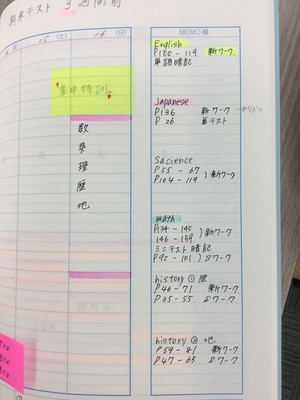 期末テスト 3週間前
15 (土)
16 (日)
MEMO欄
集中特訓
数
英
理
歴
地
English
P100 - 119 新ワーク
単語暗記
Japanese
P136 新ワーク
P26 単テスト
Sacience
P55 - 67
P104 - 119 ) 新ワーク
math
P134 - 140
146 - 159 ) 新ワーク
ミニテスト暗記
P92 - 101 ) Sワーク
history ① 歴
P46 - 71 新ワーク
P35 - 55 Sワーク
history ② 地
P59 - 81 新ワーク
P47 - 65 Sワーク